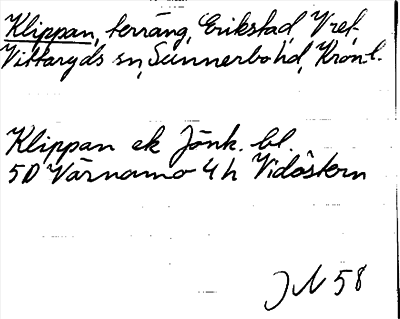 Klippan, terräng, Erikstad Vref.
Vittaryds sn, Sunnerbo hd, Kronl.
Klippan ek Jönk. bl.
5D Värnamo 4 h Vidöstern
JN 58